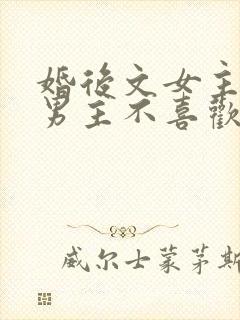 婚後文女主
男主不喜歡
威尔士蒙茅斯